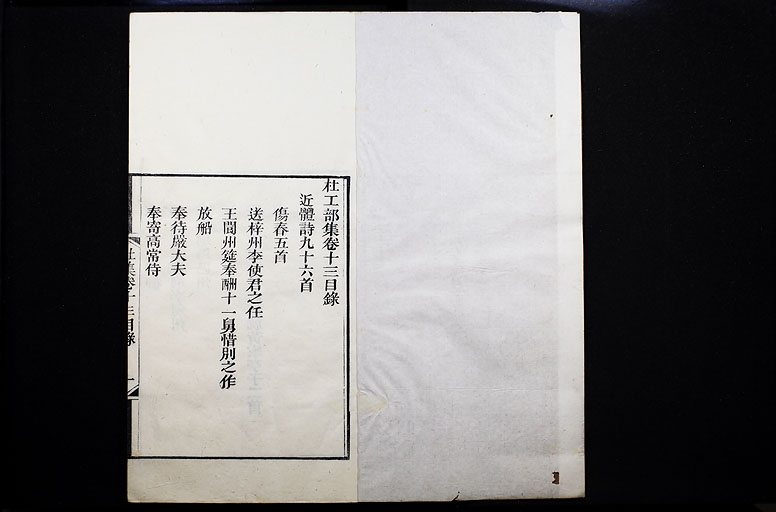 杜工部集卷十三目錄
近體詩九十六首
傷春五首
送梓州李使君之任
王閬州筵奉酬十一舅惜別之作
放船
奉待嚴大夫
奉寄高常侍
杜集卷十三目錄
一